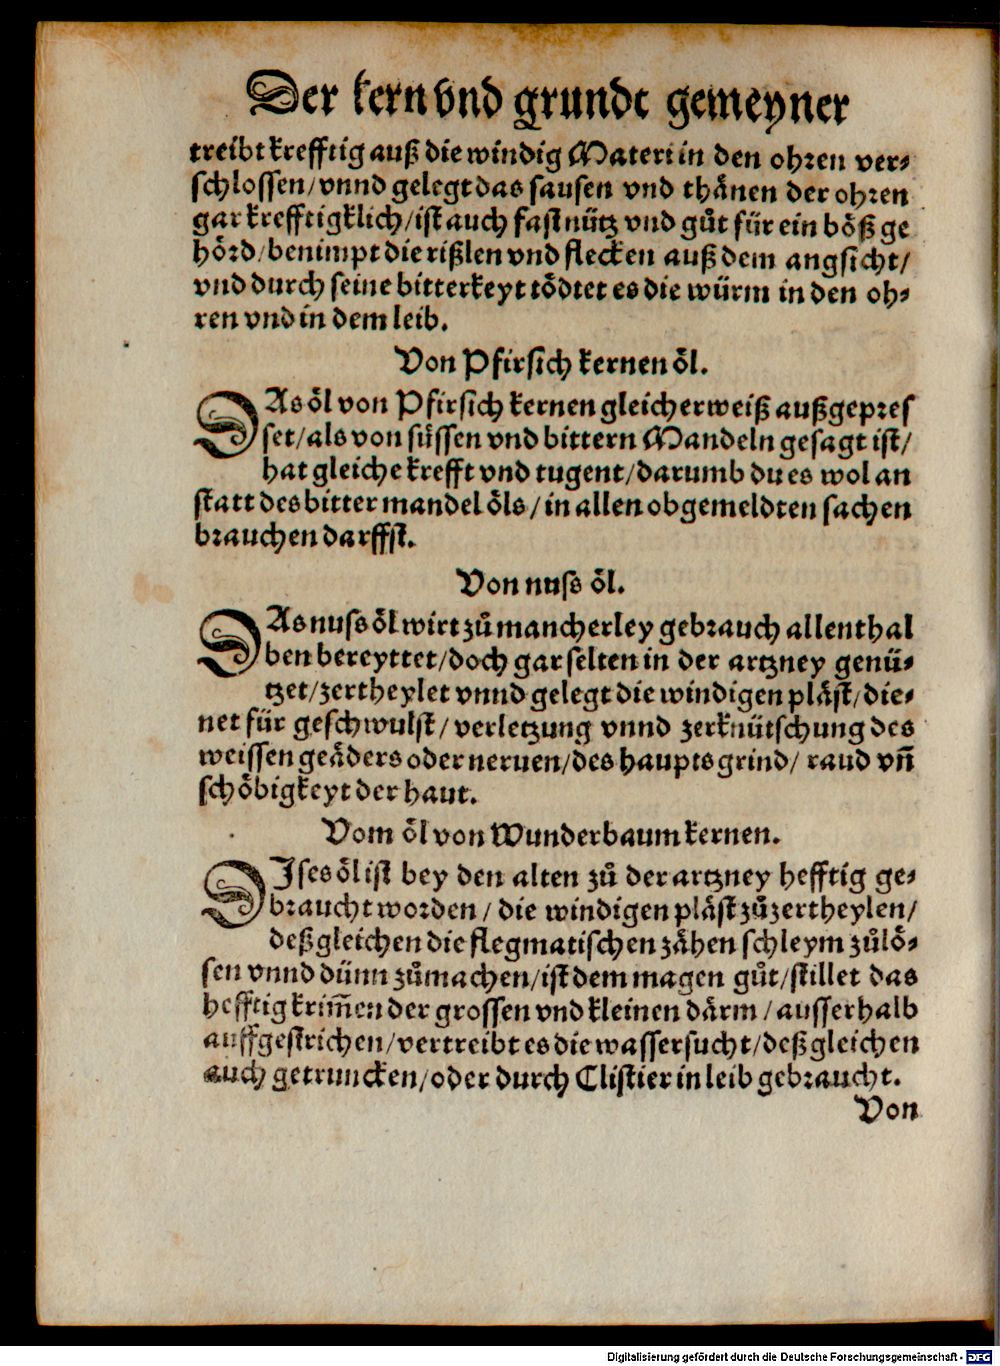 Der kern vnd grundt gemeyner
treibt krefftig auß die windig Materi in den ohren ver⸗
schlossen/ vnnd gelegt das sausen vnd thånen der ohren
gar krefftigklich/ ist auch fast nütz vnd gůt für ein bőß ge
hőrd/ benimpt die rißlen vnd flecken auß dem angsicht/
vnd durch seine bitterkeyt tődtet es die würm in den oh⸗
ren vnd in dem leib.
Von Pfirsich kernen ől.
DAs ől von Pfirsich kernen gleicherweiß außgepres
set/ als von süssen vnd bittern Mandeln gesagt ist/
hat gleiche krefft vnd tugent/ darumb du es wol an
statt des bitter mandel őls/ in allen obgemeldten sachen
brauchen darffst.
Von nuss ől.
DAs nuss ől wirt zů mancherley gebrauch allenthal
ben bereyttet/ doch gar selten in der artzney genü⸗
tzet/ zertheylet vnnd gelegt die windigen plåst/ die⸗
net für geschwulst/ verletzung vnnd zerknütschung des
weissen geåders oder neruen/ des haupts grind/ raud vn̄
schőbigkeyt der haut.
Vom ől von Wunderbaum kernen.
DIses ől ist bey den alten zů der artzney hefftig ge⸗
braucht worden/ die windigen plåst zůzertheylen/
deßgleichen die flegmatischen zåhen schleym zůlő⸗
sen vnnd dünn zůmachen/ ist dem magen gůt/ stillet das
hefftig krim̄en der grossen vnd kleinen dårm/ ausserhalb
auffgestrichen/ vertreibt es die wassersucht/ deßgleichen
auch getruncken/ oder durch Clistier in leib gebraucht.
Von
Digitalisierung gefördert durch die Deutsche Forschungsgemeinschaft - DFG